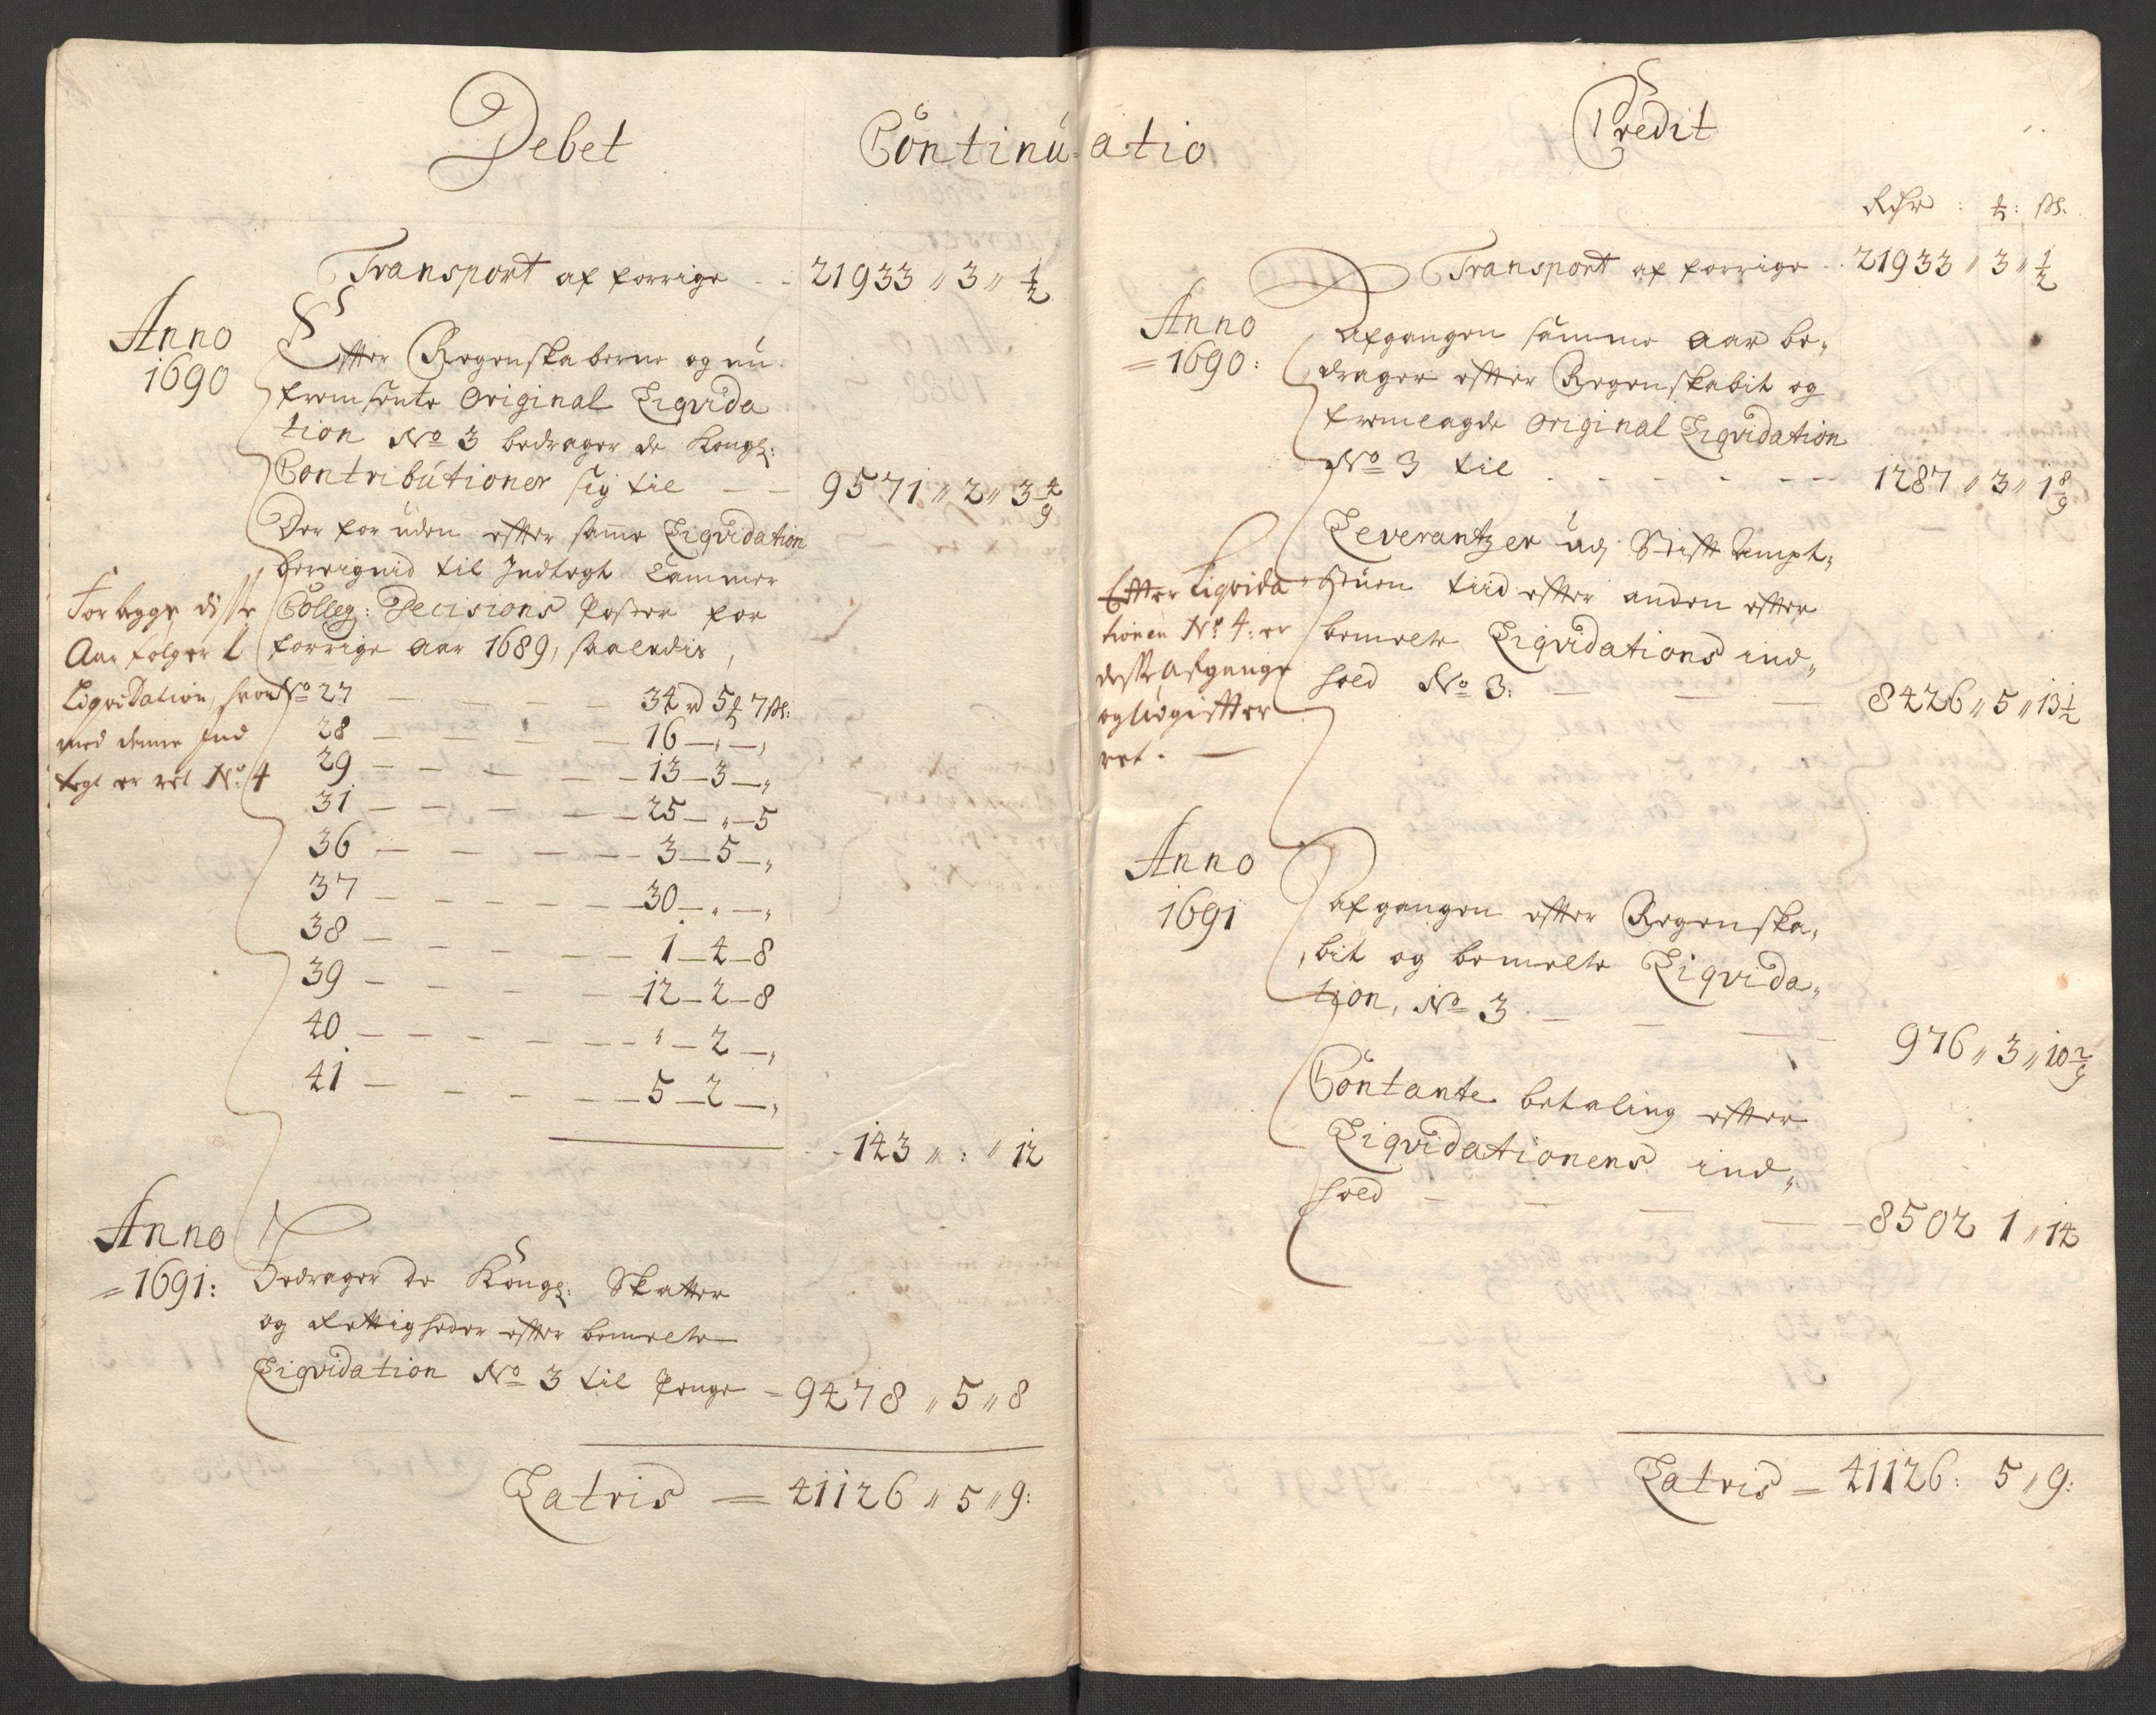 Debet
Continu-atio
Transport af forrige - - 21933 „ 3 „ 1/2
Anno
1690
Efter Regenskaberne og nu
fremsente Original Liqvida
tion No 3 bedrager de Kongl:
Contributioner sig til - - 9571 „ 2 „ 3 4/9
Der foruden efter samme Liqvidation
berregnid til Indtegt Cammer
Colleg: Decisions Poster for
forrige Aar 1689, saaledis,
For begge disse
Aar følger 1
Liqvidation, hvor
med denne Ind
tegt er ret No. 4
No 27 — — — 34 rd 5 ₰ 7 sk:
28 — — — 16 — „ — „
29 — — — 13 — 3 — „
31 — — — 25 — „ — 5
36 — — — 3 — 5 — „
37 — — — 30 — „ — „
38 — — — 1 — 4 — 8
39 — — — 12 — 2 — 8
40 — — — „ — 2 — „
41 — — — 5 — 2 — „
- - 143 „ : „ 12
Anno
= 1691:
Bedrager de Kongl: Skatter
og Rettigheder efter bemelte
Liqvidation No 3 til Penge = 9478 „ 5 „ 8
Latris = 41126 „ 5 „ 9:
Credit
Rdr : ₰ : sk.
Transport af forrige - - 21933 „ 3 „ 1/2
Anno
= 1690:
Afgangen samme Aar be„
drager efter Regenskabit og
fremlagde Original Liqvidation
No 3 til - - - - - 1287 „ 3 „ 1 8/9
Leverantzer udj Stift Ampt„
Stuen tiid efter anden efter
bemelte Liqvidations ind„
hold No 3: — — — 8426 „ 5 „ 13 1/2
Efter Liqvida
tionen No. 4: er
desse Afgange
og Udgifter
ret. —
Anno
1691
Afgangen efter Regenska„
„bit og bemelte Liqvida„
tion, No 3 - — — — 976 „ 3 „ 10 2/9
Contante betaling efter
Liqvidationens ind„
hold — — — — 8502 1 „ 14
Latris = 41126: 5 „ 9: